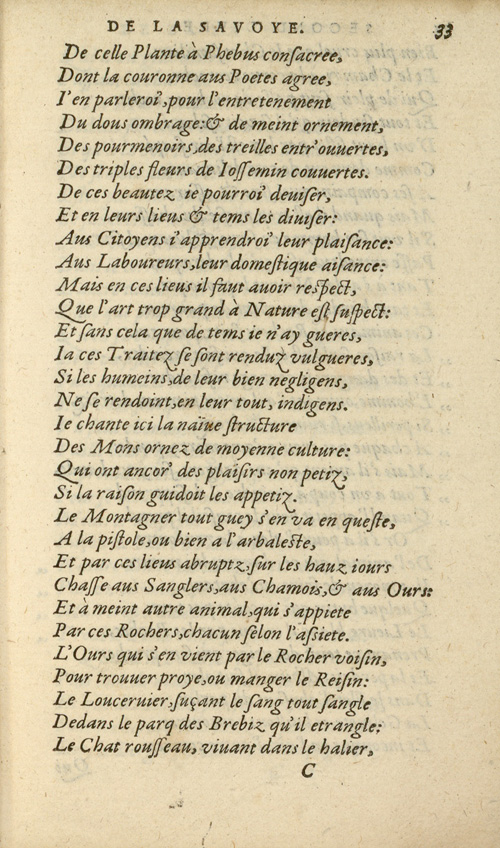 DE LA SAVOYE. 33
De celle Plante à Phebus conſacree,
Dont la couronne aus Poetes agree,
I'en parleroi', pour l'entretenement
Du dous ombrage: & de meint ornement,
Des pourmenoirs, des treilles entr'ouuertes,
Des triples fleurs de Ioſſemin couuertes.
De ces beautez ie pourroi' deuiſer,
Et en leurs lieus & tems les diuiſer:
Aus Citoyens i'apprendroi' leur plaiſance:
Aus Laboureurs, leur domeſtique aiſance:
Mais en ces lieus il faut auoir reſpect,
Que l'art trop grand à Nature eſt ſuſpect:
Et ſans cela que de tems ie n'ay gueres,
Ia ces Traitez ſe ſont renduz vulgueres,
Si les humeins, de leur bien negligens,
Ne ſe rendoint, en leur tout, indigens.
Ie chante ici la naïue ſtructure
Des Mons ornez de moyenne culture:
Qui ont ancor' des plaiſirs non petiz,
Si la raiſon guidoit les appetiz.
Le Montagner tout guey s'en va en queſte,
A la piſtole, ou bien a l'arbaleſte,
Et par ces lieus abruptz, ſur les hauz iours
Chaſſe aus Sanglers, aus Chamois, & aus Ours:
Et à meint autre animal, qui s'appiete
Par ces Rochers, chacun ſelon l'aſsiete.
L'Ours qui s'en vient par le Rocher voiſin,
Pour trouuer proye, ou manger le Reiſin:
Le Louceruier, ſuçant le ſang tout ſangle
Dedans le parq des Brebiz qu'il etrangle:
Le Chat rouſſeau, viuant dans le halier,
C